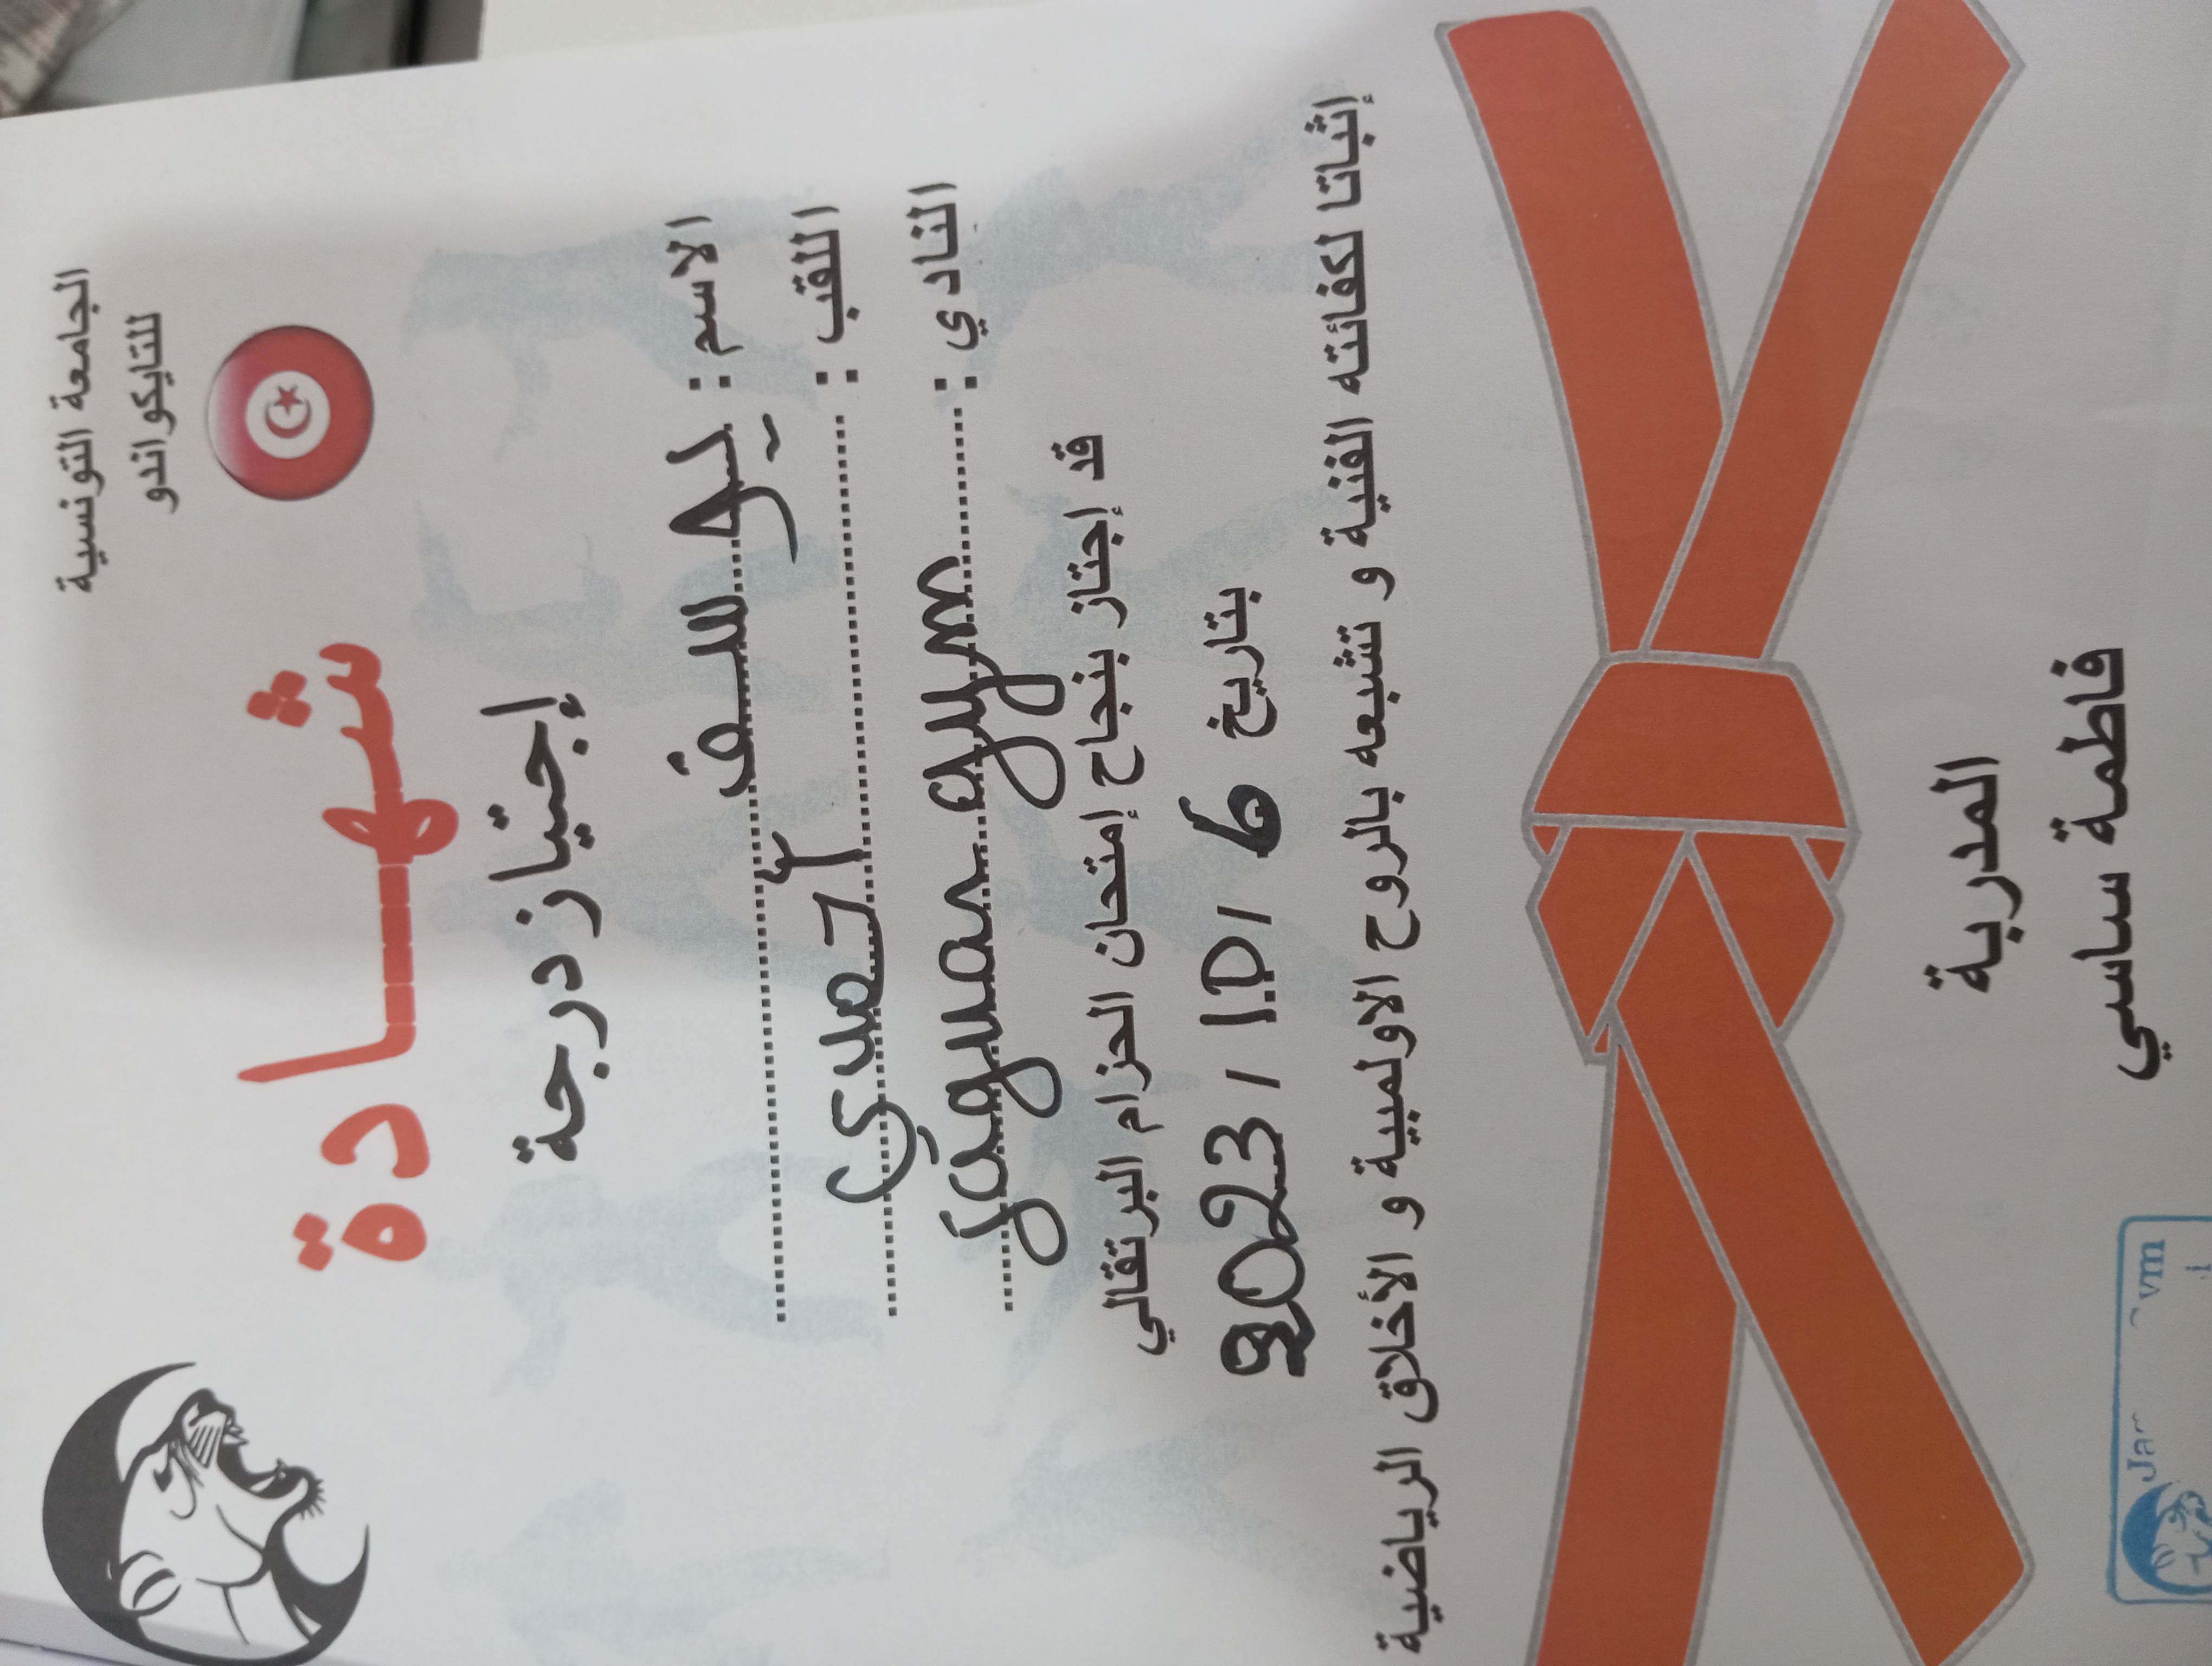 الجامعة التونسية
للتايكواندو
شهادة
إجتياز درجة
الاسم : يوسف
اللقب :
النادي : Jaguar gym
قد إجتاز بنجاح إمتحان الحزام البرتقالي
بتاريخ 6 / 10 / 2023
إثباتا لكفائته الفنية و تشبعه بالروح الاولمبية و الأخلاق الرياضية
المدربة
فاطمة ساسي